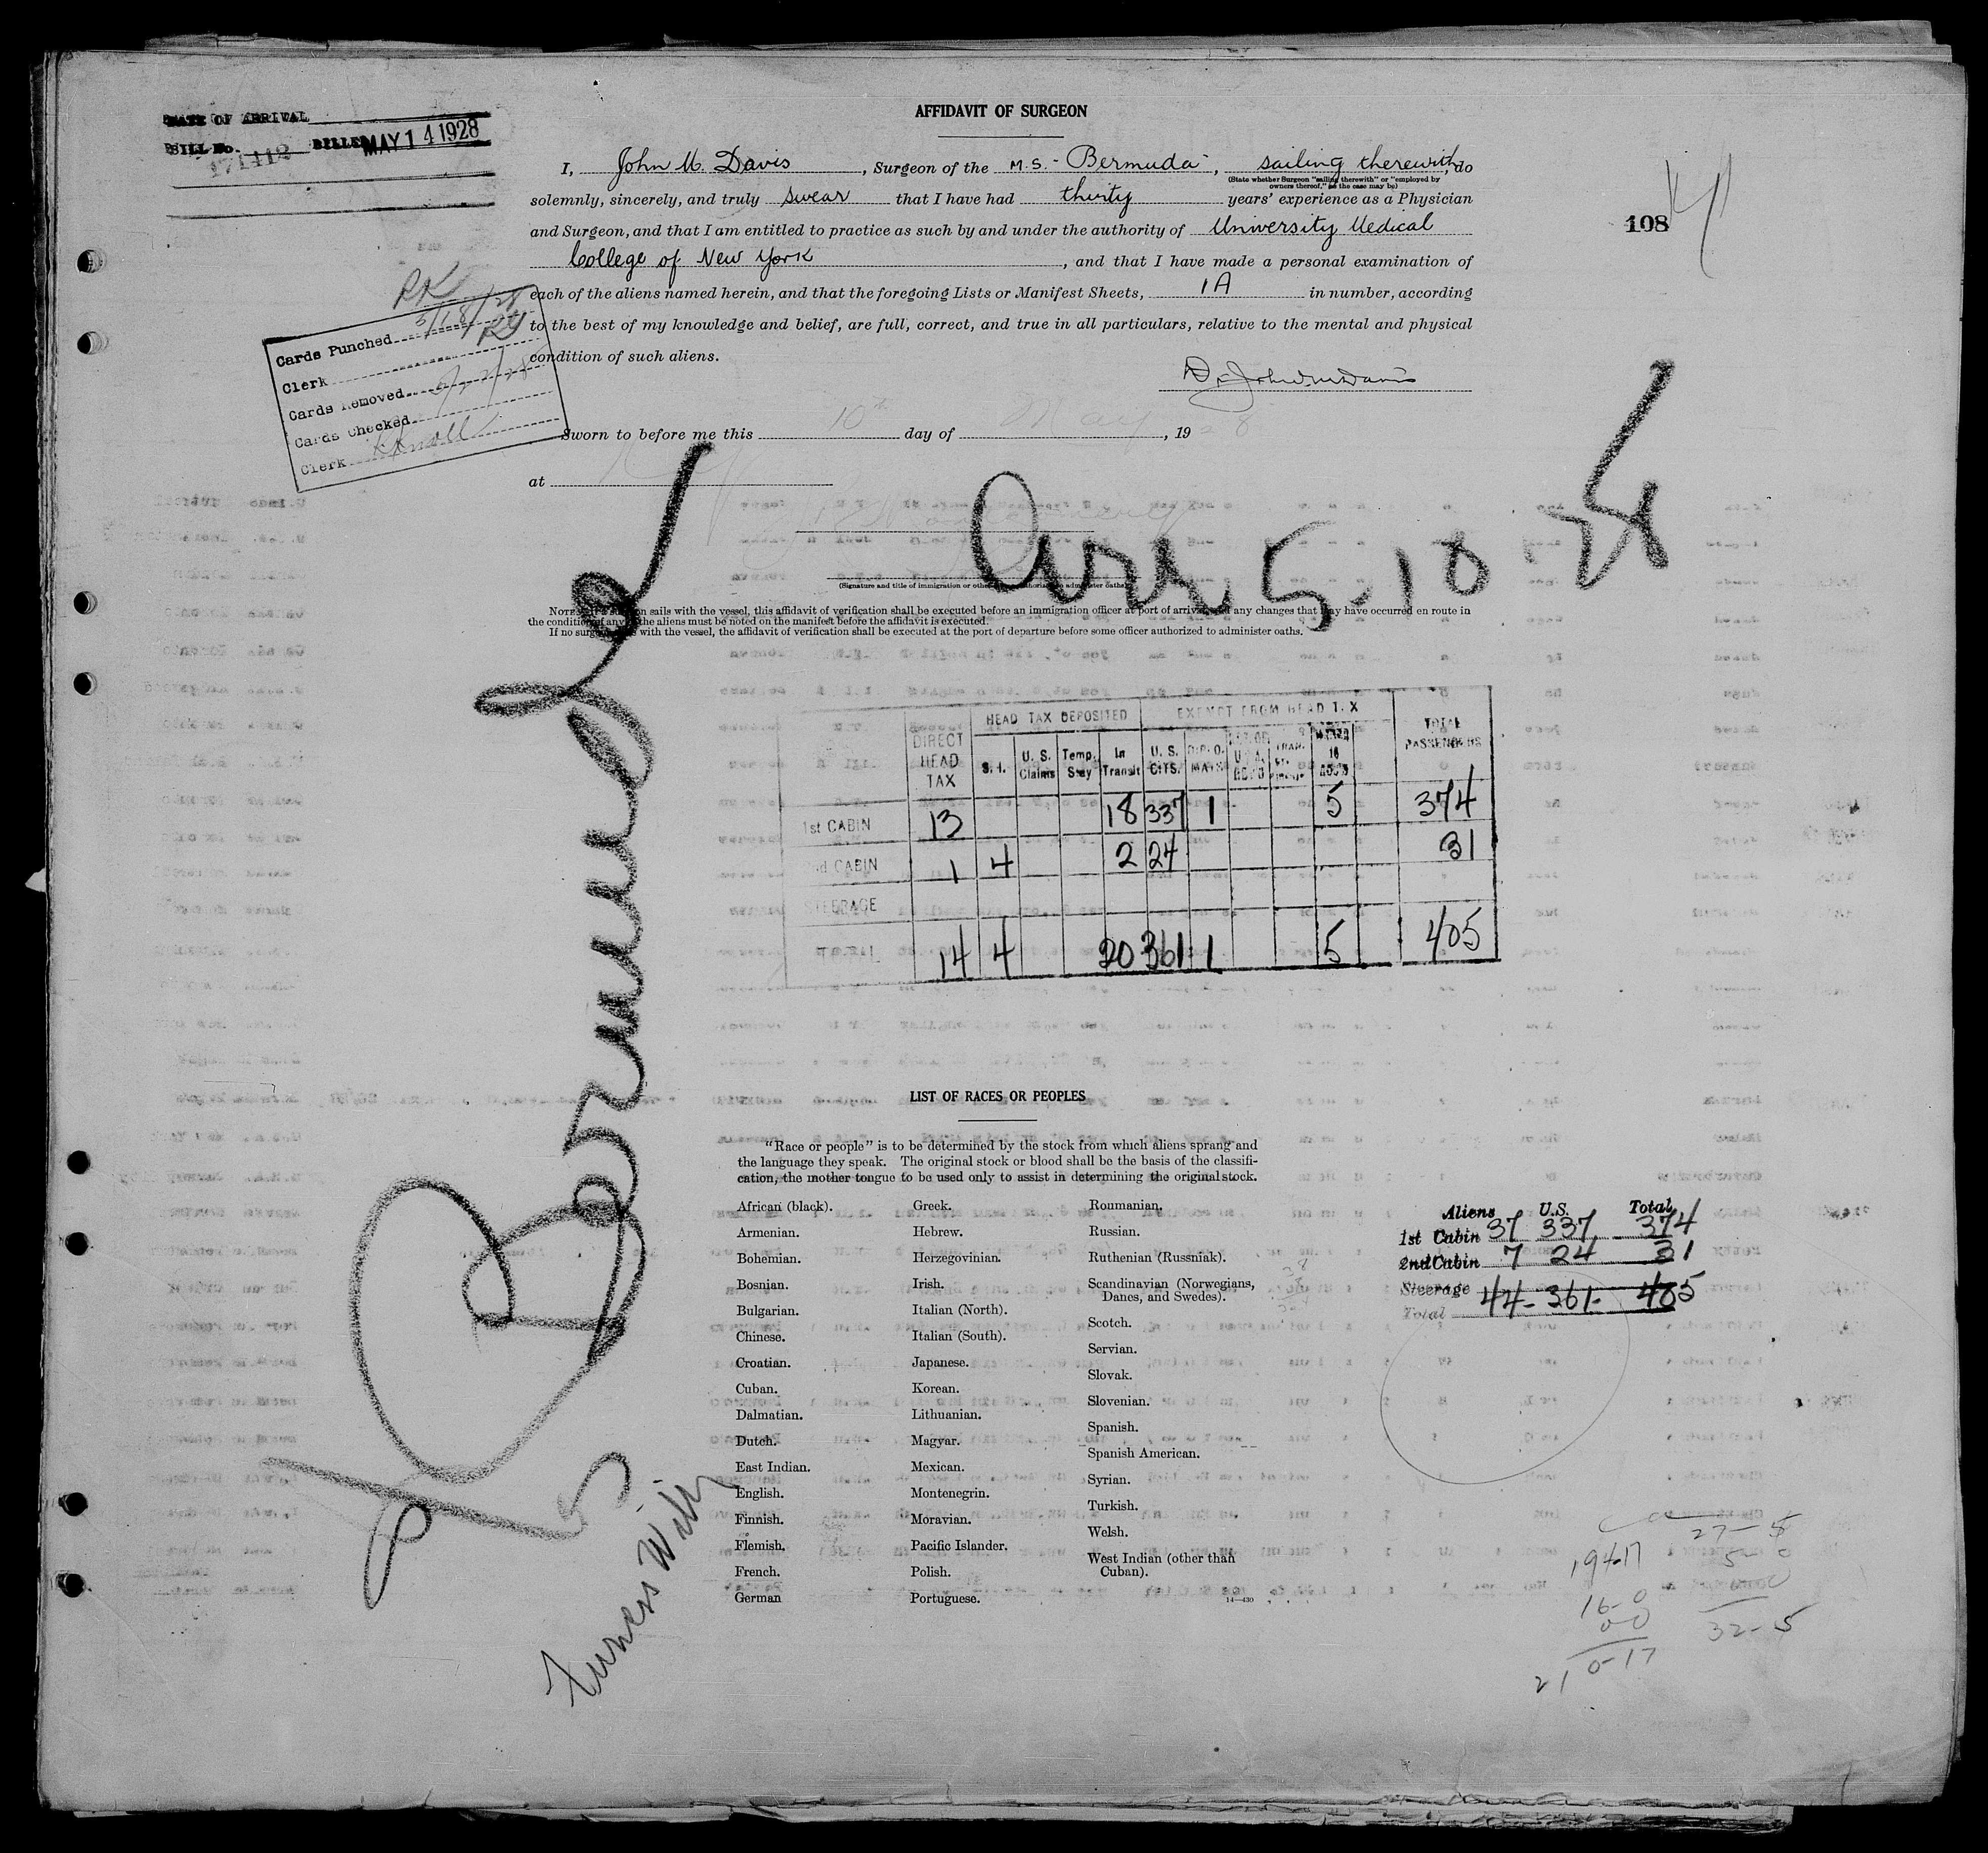 DATE OF ARRIVAL
BILL No. 171412 BILLED MAY 14 1928
AFFIDAVIT OF SURGEON
I, John M. Davis, Surgeon of the M.S. - Bermuda -, sailing therewith, do
(State whether Surgeon "sailing therewith" or "employed by
owners thereof," as the case may be)
solemnly, sincerely, and truly swear that I have had thirty years' experience as a Physician
and Surgeon, and that I am entitled to practice as such by and under the authority of University Medical
College of New York, and that I have made a personal examination of
each of the aliens named herein, and that the foregoing Lists or Manifest Sheets, 1A in number, according
to the best of my knowledge and belief, are full, correct, and true in all particulars, relative to the mental and physical
condition of such aliens.
Dr John M Davis
Sworn to before me this 10th day of May, 1928
at
108
RK
Cards Punched 3/18/28
Clerk RK
Cards Removed
Cards Checked
Clerk
Arr 5-10-28
(Signature and title of immigration or other officer authorized to administer oaths)
NOTE.—If a surgeon sails with the vessel, this affidavit of verification shall be executed before an immigration officer at port of arrival, and any changes that may have occurred en route in
the condition of any of the aliens must be noted on the manifest before the affidavit is executed.
If no surgeon sails with the vessel, the affidavit of verification shall be executed at the port of departure before some officer authorized to administer oaths.
Bermuda
Furness Withy
HEAD TAX DEPOSITED EXEMPT FROM HEAD TAX
DIRECT HEAD TAX S.I. U. S. Claims Temp. Stay In Transit U. S. CITS. DIPLOMATS UNDER 16 ACCOM TOTAL PASSENGERS
1st CABIN 13 18 337 1 5 374
2nd CABIN 1 4 2 24 31
STEERAGE
TOTAL 14 4 20 361 1 5 405
LIST OF RACES OR PEOPLES
"Race or people" is to be determined by the stock from which aliens sprang and
the language they speak. The original stock or blood shall be the basis of the classifi-
cation, the mother tongue to be used only to assist in determining the original stock.
African (black).
Armenian.
Bohemian.
Bosnian.
Bulgarian.
Chinese.
Croatian.
Cuban.
Dalmatian.
Dutch.
East Indian.
English.
Finnish.
Flemish.
French.
German
Greek.
Hebrew.
Herzegovinian.
Irish.
Italian (North).
Italian (South).
Japanese.
Korean.
Lithuanian.
Magyar.
Mexican.
Montenegrin.
Moravian.
Pacific Islander.
Polish.
Portuguese.
Roumanian.
Russian.
Ruthenian (Russniak).
Scandinavian (Norwegians,
Danes, and Swedes).
Scotch.
Servian.
Slovak.
Slovenian.
Spanish.
Spanish American.
Syrian.
Turkish.
Welsh.
West Indian (other than
Cuban).
14—430
Aliens U.S. Total
1st Cabin 37 337 374
2nd Cabin 7 24 31
Steerage
Total 44- 361- 405
27-5
194-17
5-0
16-0
0-0
32-5
210-17